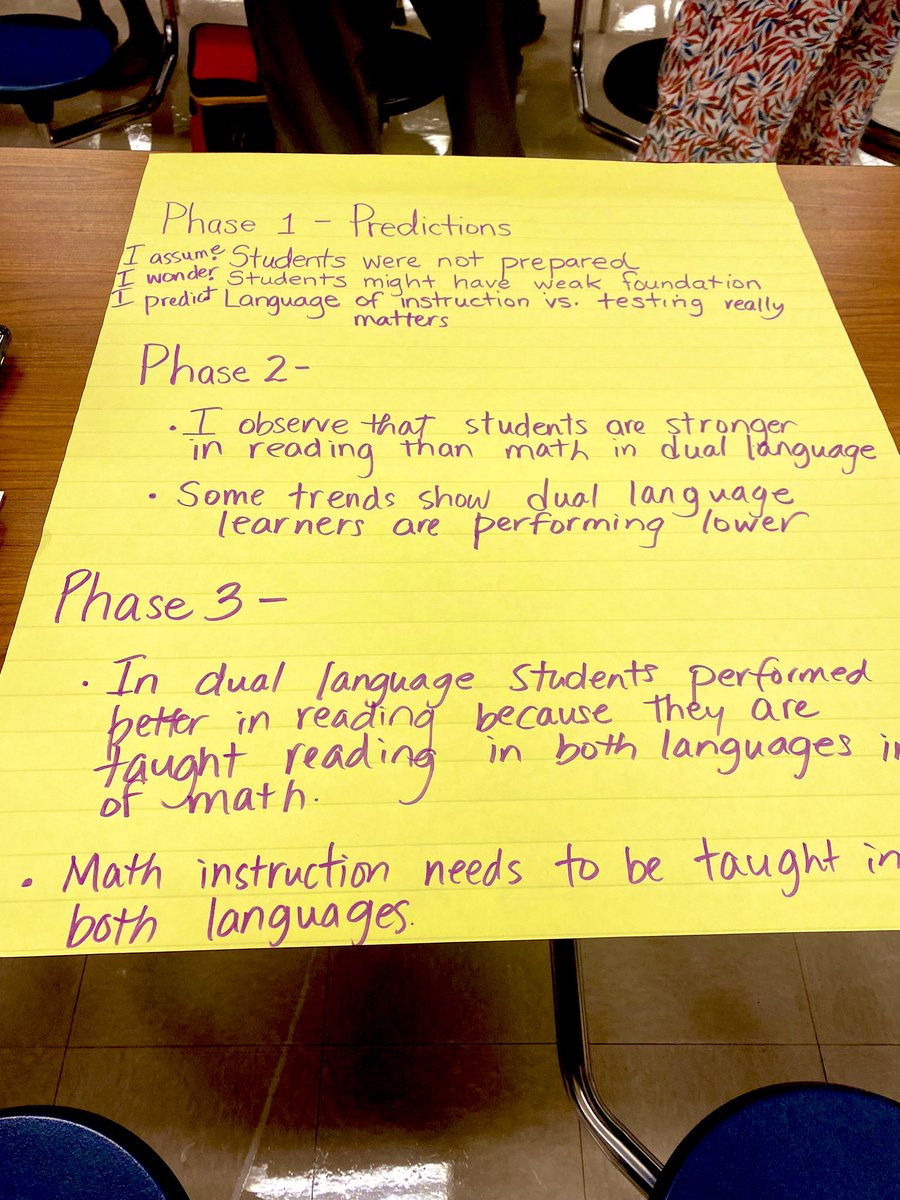 Phase 1 - Predictions
I assume: Students were not prepared
I wonder: Students might have weak foundation
I predict Language of instruction vs. testing really
matters
Phase 2-
• I observe that students are stronger
in reading than math in dual language
• Some trends show dual language
learners are performing lower
Phase 3 -
• In dual language students performed
better in reading because they are
taught reading in both languages
of math.
• Math instruction needs to be taught in
both languages.